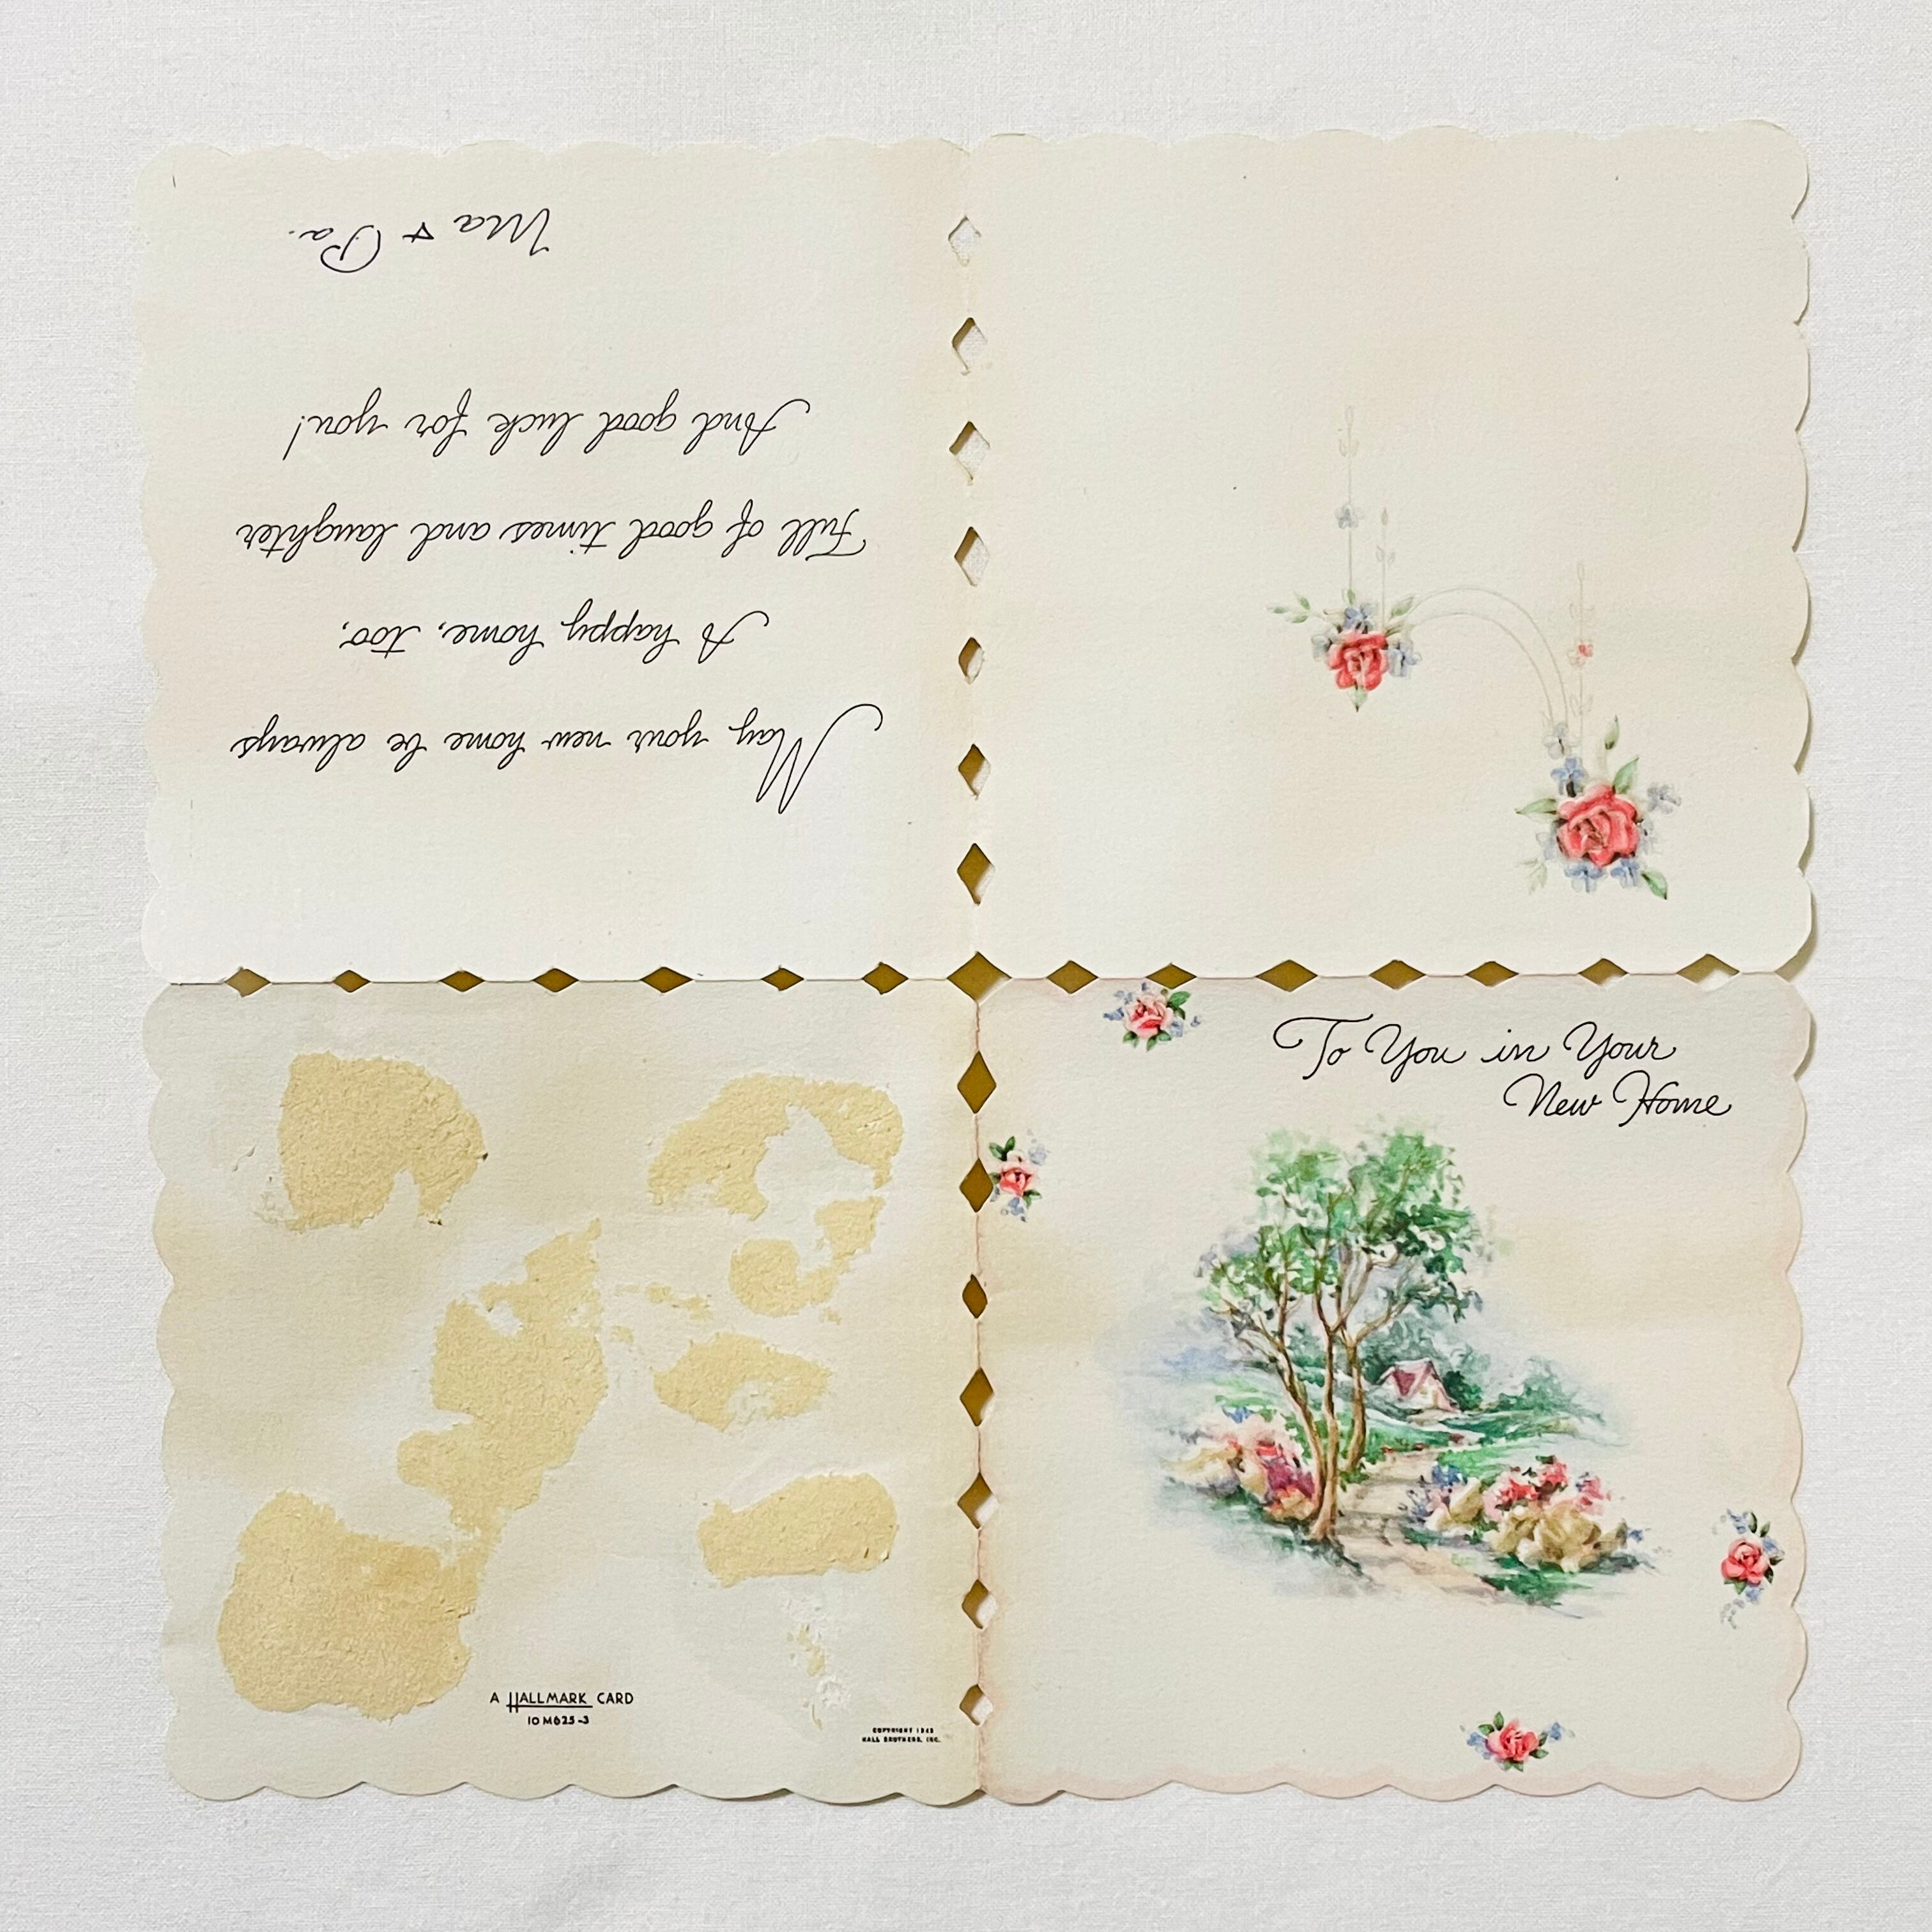 To You in Your
New Home
May your new home be always
A happy home, too,
Full of good times and laughter
And good luck for you!
Ma & Pa.
A HALLMARK CARD
10 M625-3
COPYRIGHT
HALL BROTHERS, INC.